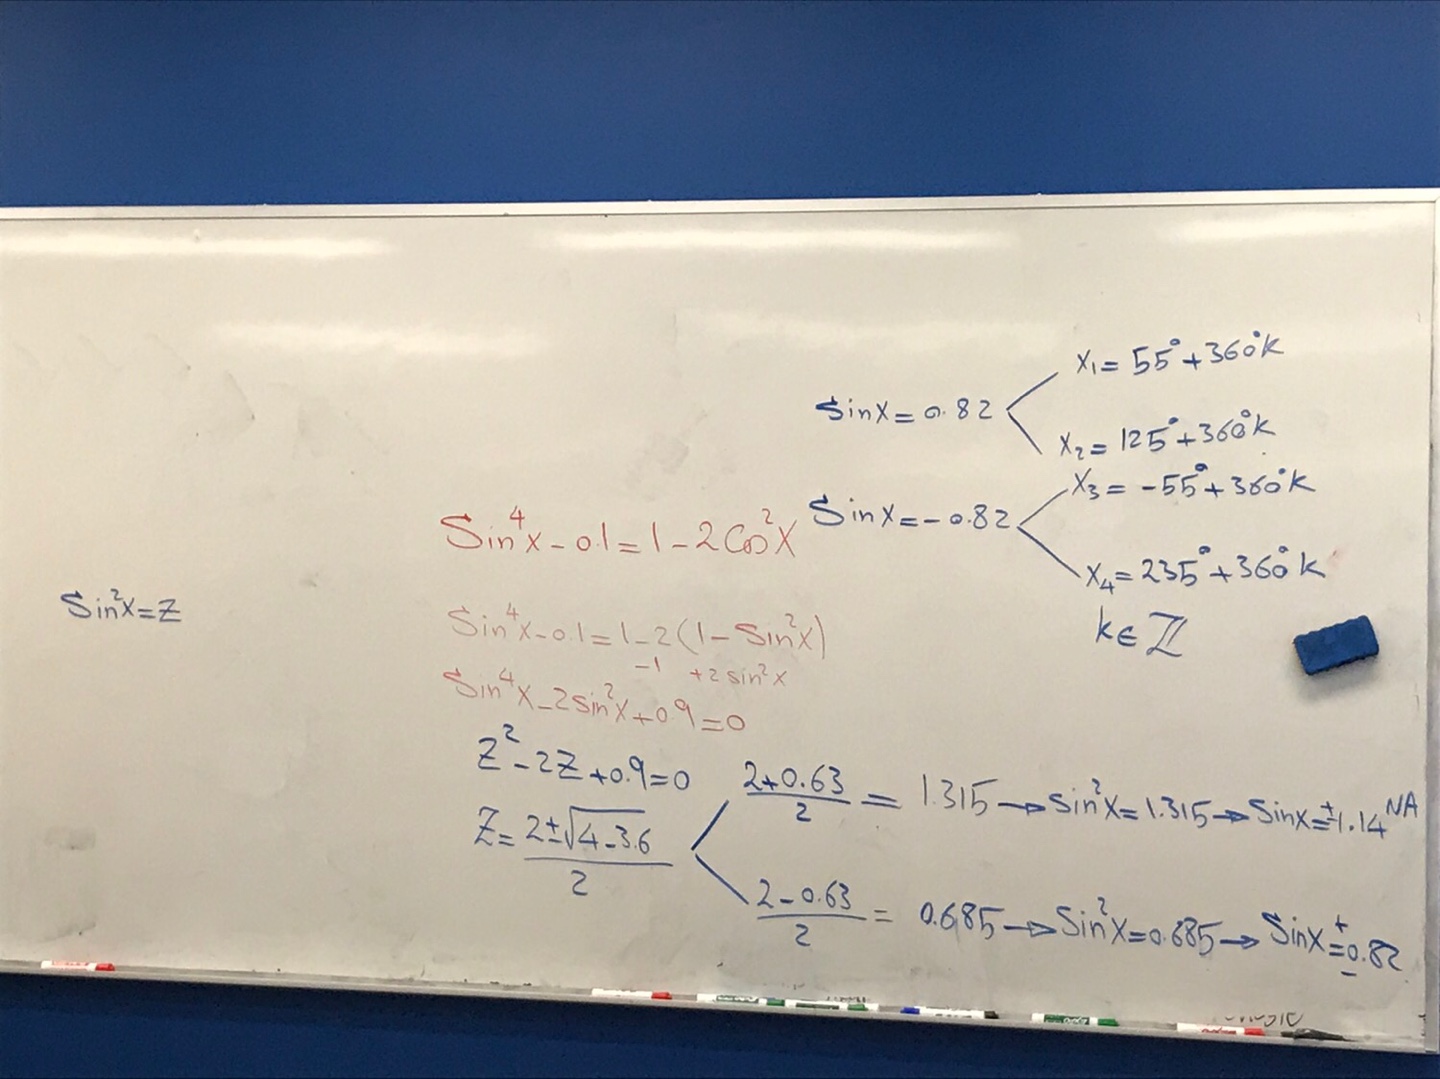 Sinx = 0.82
x₁ = 55° + 360°k
x₂ = 125° + 360°k
Sinx = -0.82
x₃ = -55° + 360°k
x₄ = 235° + 360°k
k ∈ ℤ
Sin⁴x - 0.1 = 1 - 2Cos²x
Sin²x = Z
Sin⁴x - 0.1 = 1 - 2(1 - Sin²x)
-1 +2sin²x
Sin⁴x - 2sin²x + 0.9 = 0
Z² - 2Z + 0.9 = 0
Z = (2 ± √(4 - 3.6))/2
(2 + 0.63)/2 = 1.315 → Sin²x = 1.315 → Sinx = ±1.14 NA
(2 - 0.63)/2 = 0.685 → Sin²x = 0.685 → Sinx = ±0.82